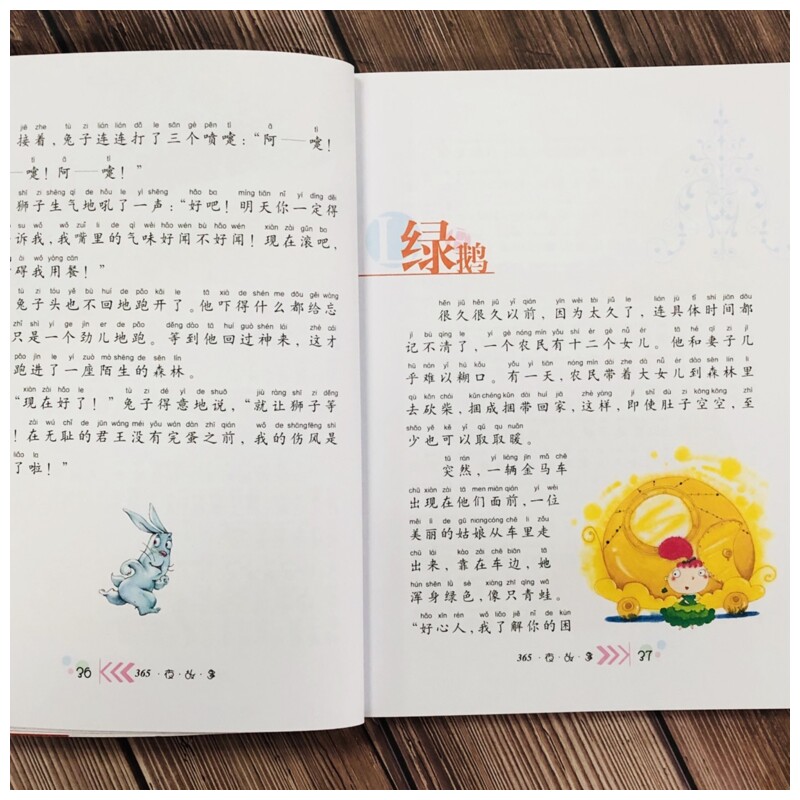 jiē zhe tù zi lián lián dǎ le sān gè pēn tì ā tì
接着，兔子连连打了三个喷嚏：“阿——嚏！
tì ā tì
——嚏！阿——嚏！”
shī zi shēng qì de hǒu le yì shēng hǎo ba míng tiān nǐ yí dìng děi
狮子生气地吼了一声：“好吧！明天你一定得
su wǒ wǒ zuǐ li de qì wèi hǎo wén bù hǎo wén xiàn zài gǔn ba
诉我，我嘴里的气味好闻不好闻！现在滚吧，
ài wǒ yòng cān
碍我用餐！”
tù zi tóu yě bù huí de pǎo kāi le tā xià de shén me dōu gěi wàng
兔子头也不回地跑开了。他吓得什么都给忘
zhǐ shì yí ge jìn er de pǎo děng dào tā huí guò shén lái zhè cái
只是一个劲儿地跑。等到他回过神来，这才
pǎo jìn le yí zuò mò shēng de sēn lín
跑进了一座陌生的森林。
xiàn zài hǎo le tù zi dé yì de shuō jiù ràng shī zi děng
“现在好了！”兔子得意地说，“就让狮子等
zài wú chǐ de jūn wáng méi yǒu wán dàn zhī qián wǒ de shāng fēng shì
！在无耻的君王没有完蛋之前，我的伤风是
liǎo la
了啦！”
36
365 · 夜 · 故 · 事
绿鹅
hěn jiǔ hěn jiǔ yǐ qián yīn wèi tài jiǔ le lián jù tǐ shí jiān dōu
很久很久以前，因为太久了，连具体时间都
jì bù qīng le yí gè nóng mín yǒu shí èr gè nǚ ér tā hé qī zi jī
记不清了，一个农民有十二个女儿。他和妻子几
hū nán yǐ hú kǒu yǒu yì tiān nóng mín dài zhe dà nǚ ér dào sēn lín li
乎难以糊口。有一天，农民带着大女儿到森林里
qù kǎn chái kǔn chéng kǔn dài huí jiā zhè yàng jí shǐ dù zi kōng kōng zhì
去砍柴，捆成捆带回家，这样，即使肚子空空，至
shǎo yě kě yǐ qǔ qǔ nuǎn
少也可以取取暖。
tū rán yí liàng jīn mǎ chē
突然，一辆金马车
chū xiàn zài tā men miàn qián yí wèi
出现在他们面前，一位
měi lì de gū niang cóng chē lǐ zǒu
美丽的姑娘从车里走
chū lái kào zài chē biān tā
出来，靠在车边，她
hún shēn lǜ sè xiàng zhī qīng wā
浑身绿色，像只青蛙。
hǎo xīn rén wǒ liǎo jiě nǐ de kùn
“好心人，我了解你的困
365 · 夜 · 故 · 事
37